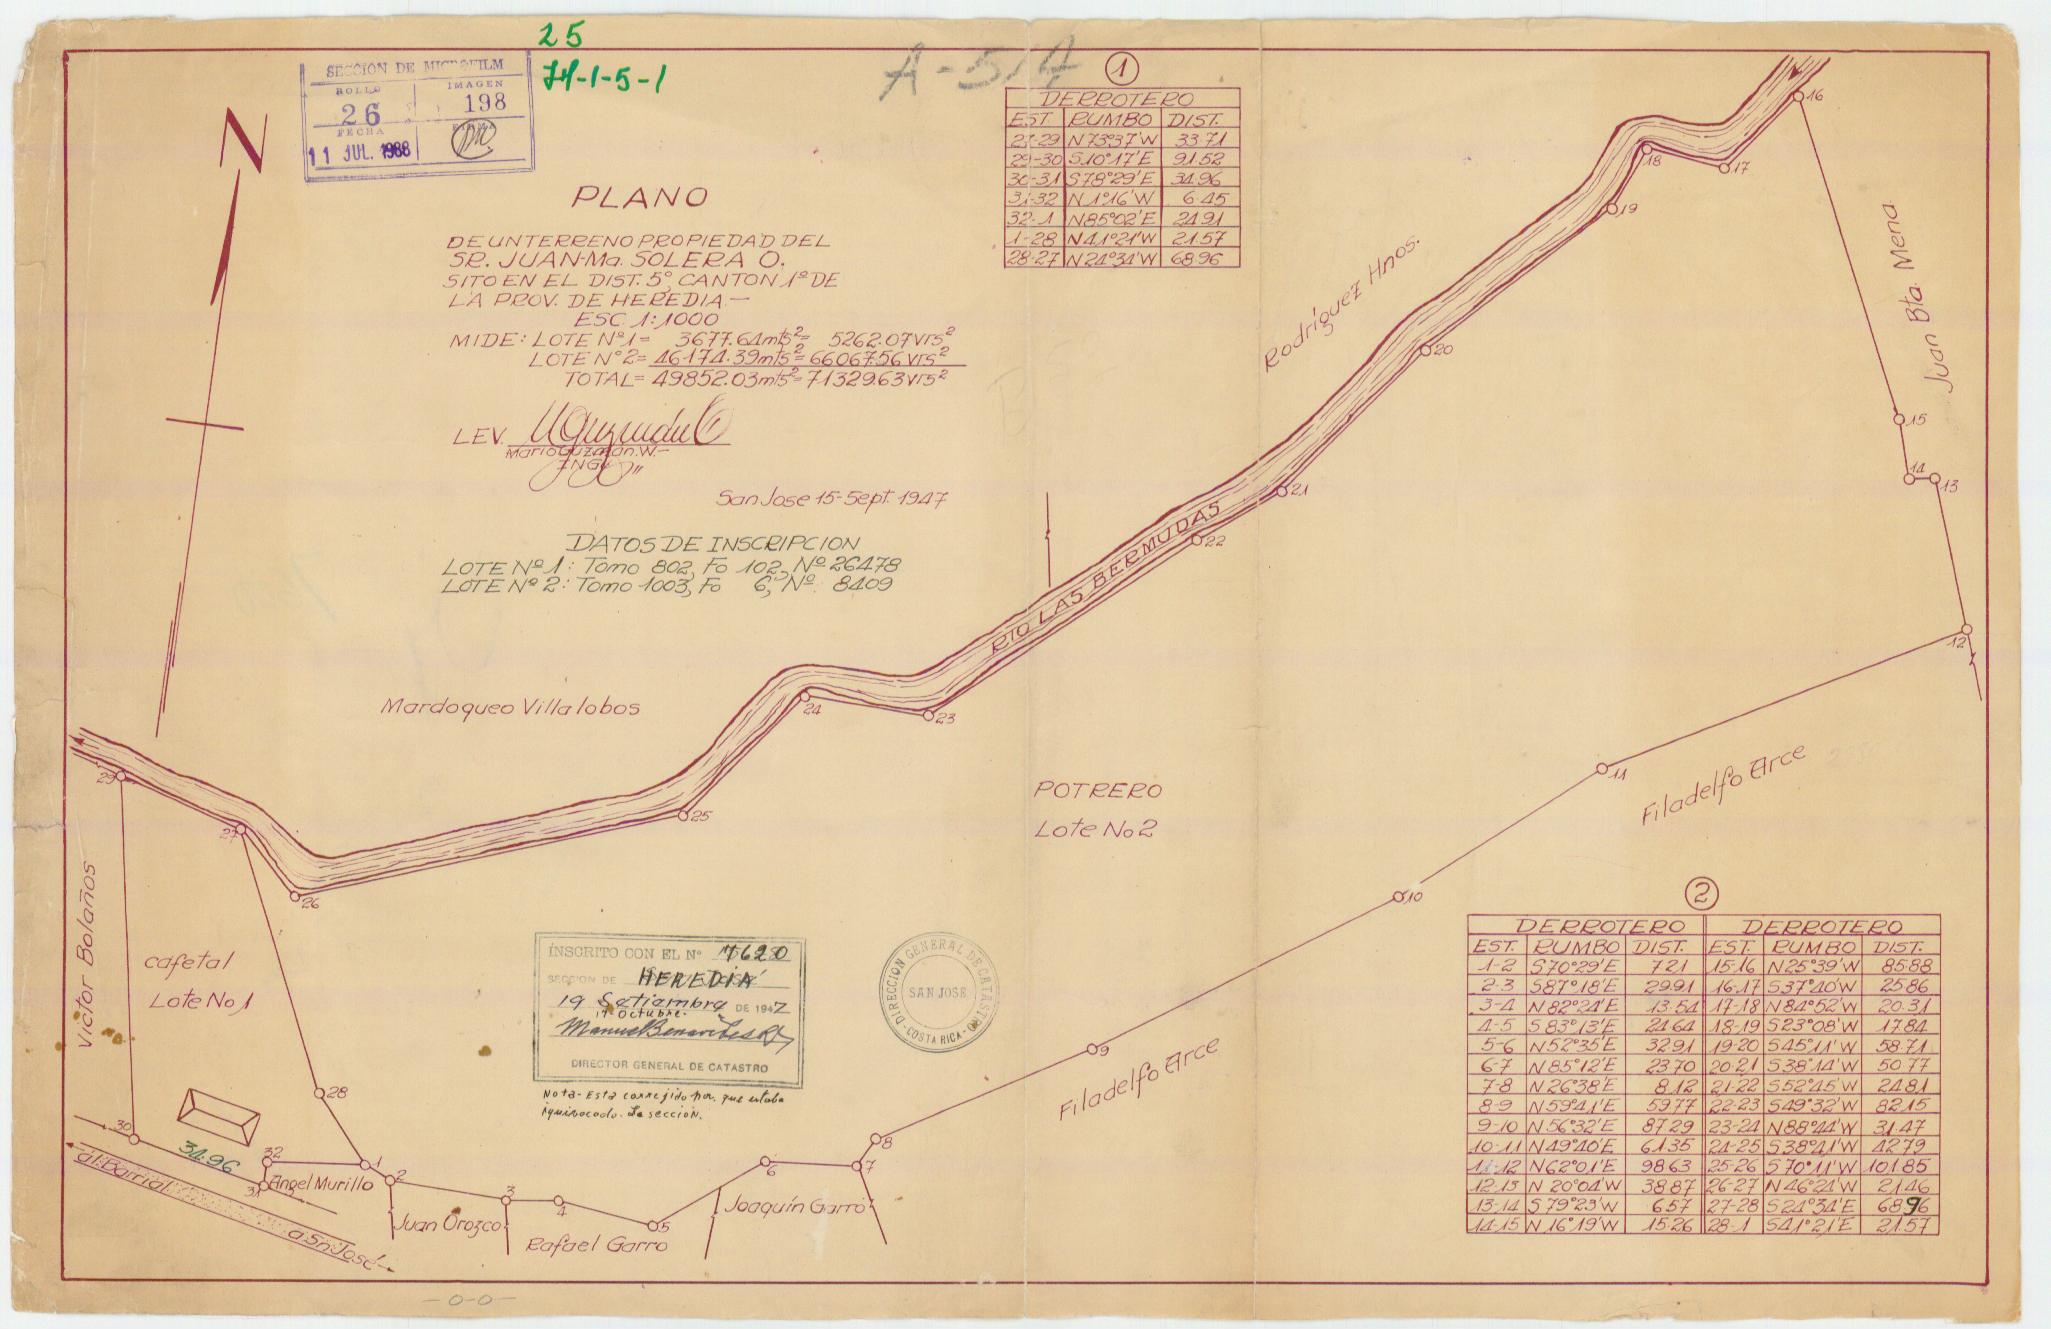 25
A-514
SECCION DE MICROFILM
ROLLO IMAGEN
26 198
FECHA FIRMA
11 JUL. 1988
N
PLANO
DE UN TERRENO PROPIEDAD DEL
SR. JUAN Ma. SOLERA O.
SITO EN EL DIST. 5º, CANTON 1º DE
LA PROV. DE HEREDIA.—
ESC. 1:1000
MIDE: LOTE Nº1= 3677.64mts²= 5262.07vrs²
LOTE Nº2= 46174.39mts²= 66067.56vrs²
TOTAL= 49852.03mts²= 71329.63vrs²
LEV.
Mario Guzmán.W.—
INGº
San Jose 15-Sept. 1947
DATOS DE INSCRIPCION
LOTE Nº 1: Tomo 802, Fo 102, Nº 26478
LOTE Nº 2: Tomo 1003, Fo 6, Nº 8409
1
DERROTERO
EST. RUMBO DIST.
27-29 N73º37'W 33.71
29-30 S10º17'E 91.52
30-31 S78º29'E 34.96
31-32 N1º16'W 6.45
32-1 N85º02'E 24.91
1-28 N41º21'W 21.57
28-27 N24º34'W 68.96
16
17
18
19
Rodríguez Hnos.
Juan Bta. Mena
20
15
14
13
21
22
RIO LAS BERMUDAS
12
Mardoqueo Villalobos
24
23
29
27
25
POTRERO
Lote No 2
11
Filadelfo Arce
26
10
Victor Bolaños
cafetal
Lote No 1
INSCRITO CON EL Nº 7620
SECCION DE HEREDIA
19 Setiembre DE 1947
17 Octubre.
Manuel Benavides R
DIRECTOR GENERAL DE CATASTRO
Nota- Esta corregido por que estaba
iquivocado. La sección.
DIRECCION GENERAL DE CATASTRO
SAN JOSE
COSTA RICA
9
Filadelfo Arce
28
30
34.96
32
31
Angel Murillo
1
2
3
4
5
6
7
8
Juan Orozco
Rafael Garro
Joaquín Garro
al Barrial
a Sn José
2
DERROTERO DERROTERO
EST. RUMBO DIST. EST. RUMBO DIST.
1-2 S70º29'E 7.21 15-16 N25º39'W 85.88
2-3 S87º18'E 29.91 16-17 S37º40'W 25.86
3-4 N82º24'E 13.54 17-18 N84º52'W 20.31
4-5 S83º13'E 24.64 18-19 S23º08'W 17.84
5-6 N52º35'E 32.91 19-20 S45º11'W 58.71
6-7 N85º12'E 23.70 20-21 S38º14'W 50.77
7-8 N26º38'E 8.12 21-22 S52º45'W 24.81
8-9 N59º41'E 59.77 22-23 S49º32'W 82.15
9-10 N56º32'E 87.29 23-24 N88º44'W 31.47
10-11 N49º40'E 61.35 24-25 S38º41'W 42.79
11-12 N62º01'E 98.63 25-26 S70º11'W 101.85
12-13 N20º04'W 38.87 26-27 N46º24'W 21.46
13-14 S79º23'W 6.57 27-28 S24º34'E 68.96
14-15 N16º19'W 15.26 28-1 S41º21'E 21.57
—0-0—